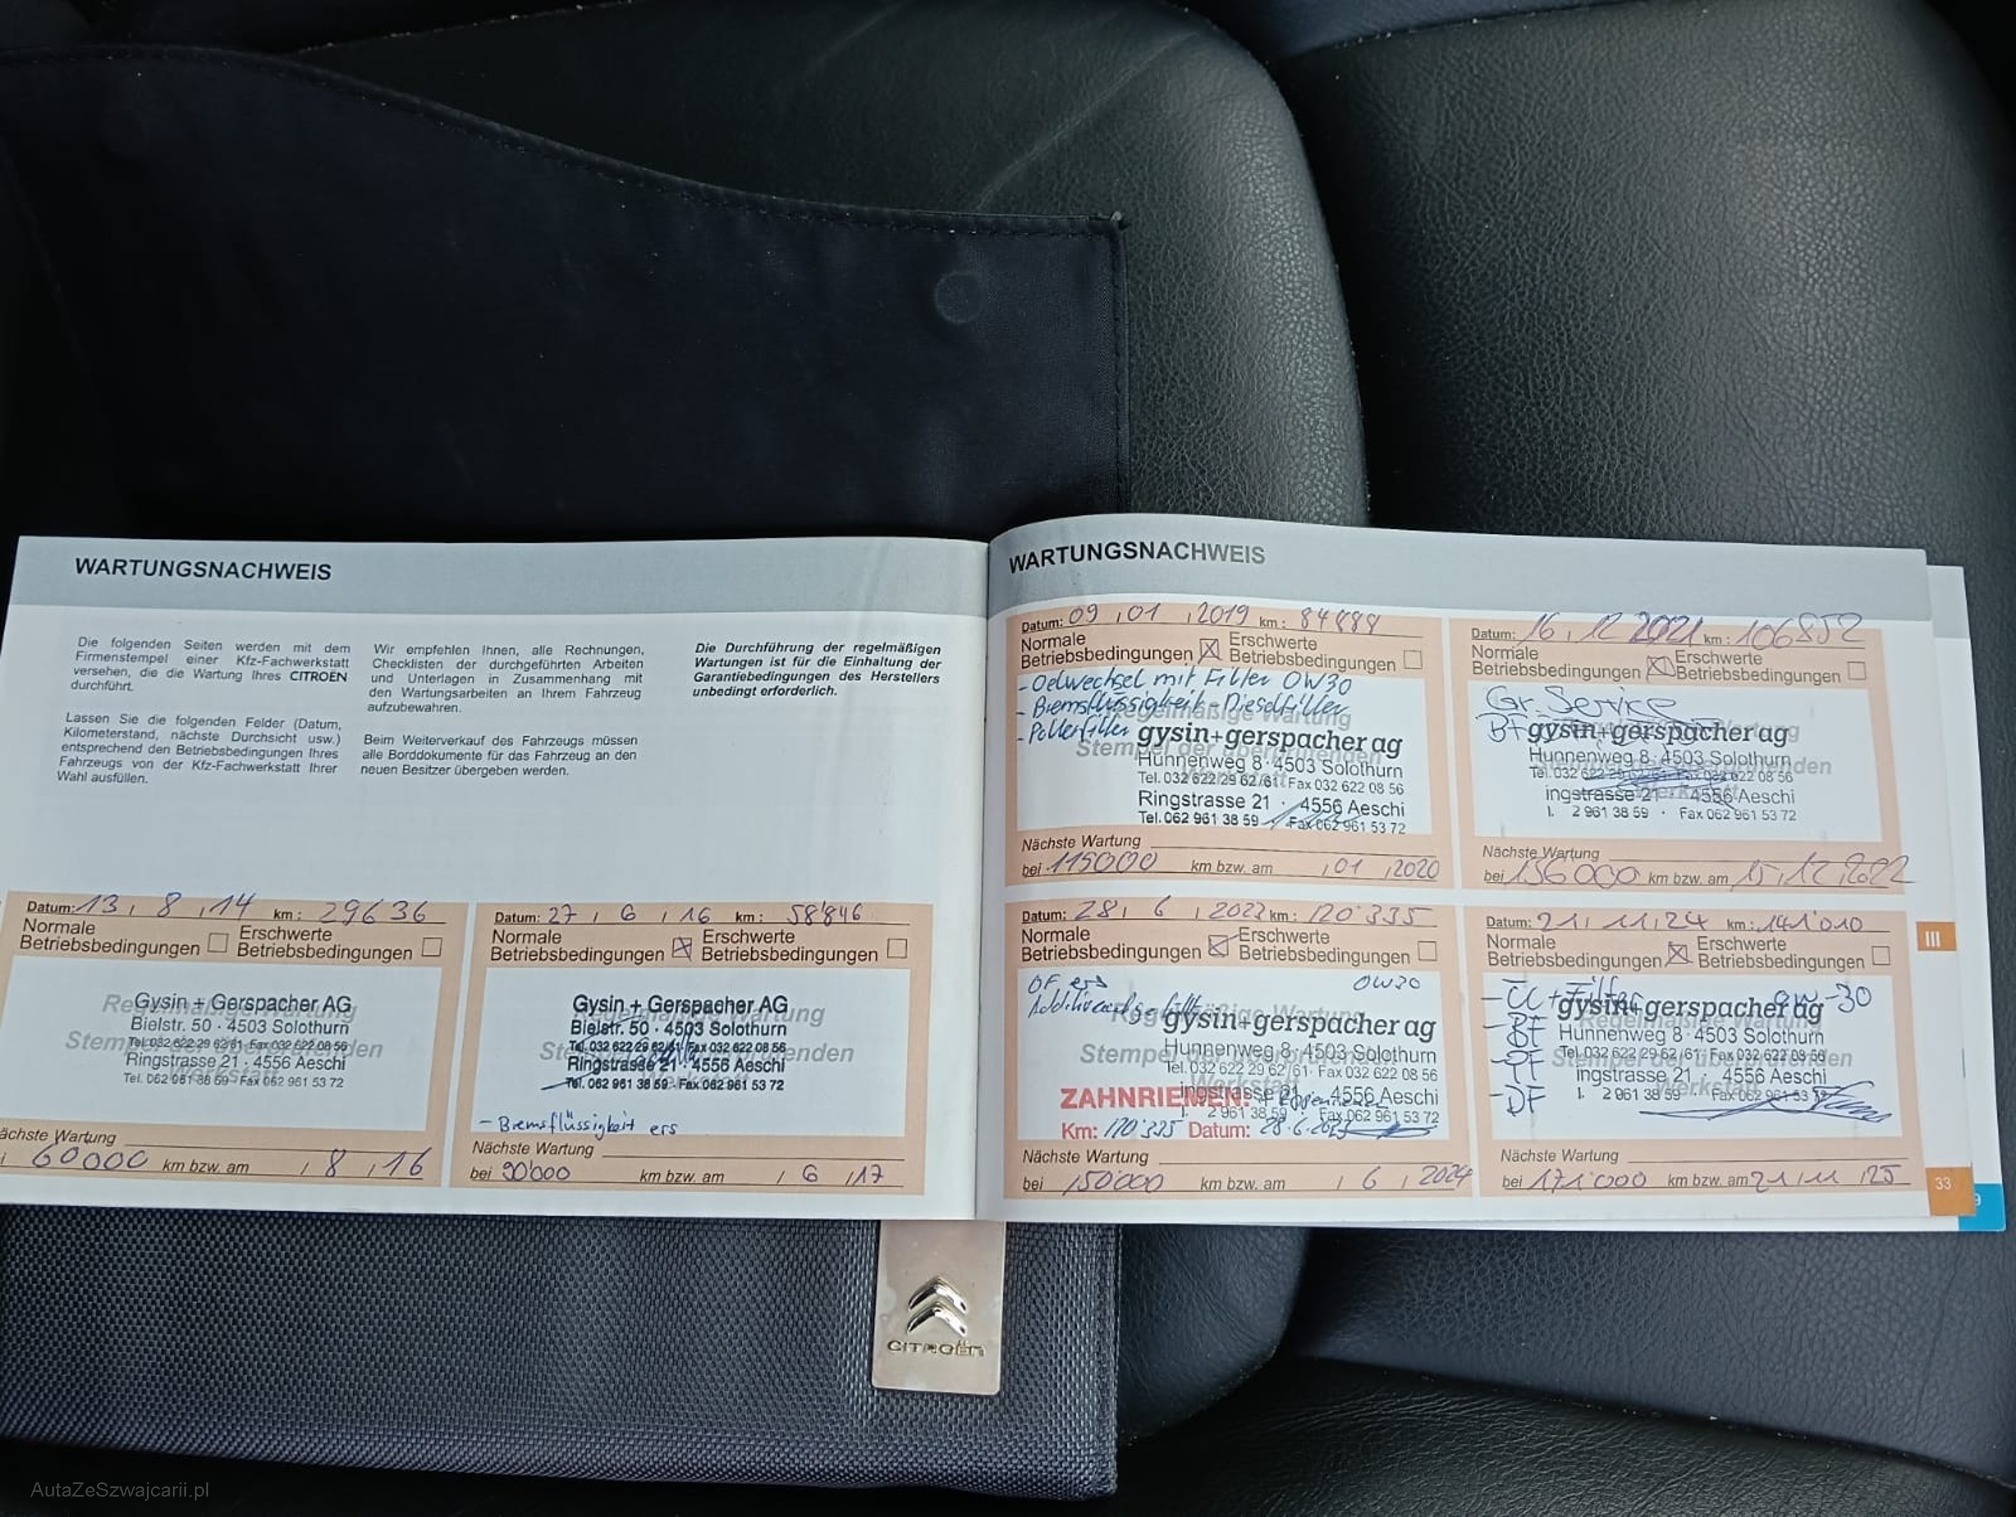 WARTUNGSNACHWEIS
Die folgenden Seiten werden mit dem
Firmenstempel einer Kfz-Fachwerkstatt
versehen, die die Wartung Ihres CITROËN
durchführt.
Lassen Sie die folgenden Felder (Datum,
Kilometerstand, nächste Durchsicht usw.)
entsprechend den Betriebsbedingungen Ihres
Fahrzeugs von der Kfz-Fachwerkstatt Ihrer
Wahl ausfüllen.
Wir empfehlen Ihnen, alle Rechnungen,
Checklisten der durchgeführten Arbeiten
und Unterlagen in Zusammenhang mit
den Wartungsarbeiten an Ihrem Fahrzeug
aufzubewahren.
Beim Weiterverkauf des Fahrzeugs müssen
alle Borddokumente für das Fahrzeug an den
neuen Besitzer übergeben werden.
Die Durchführung der regelmäßigen
Wartungen ist für die Einhaltung der
Garantiebedingungen des Herstellers
unbedingt erforderlich.
Datum: 13, 8, 14 km: 29636
Normale Betriebsbedingungen Erschwerte Betriebsbedingungen
Gysin + Gerspacher AG
Bielstr. 50 · 4503 Solothurn
Tel. 032 622 29 62/61 Fax 032 622 08 56
Ringstrasse 21 · 4556 Aeschi
Tel. 062 961 38 59 · Fax 062 961 53 72
ächste Wartung
60000 km bzw. am , 8, 16
Datum: 27, 6, 16 km: 58'846
Normale Betriebsbedingungen Erschwerte Betriebsbedingungen
Gysin + Gerspacher AG
Bielstr. 50 · 4503 Solothurn
Tel. 032 622 29 62/61 Fax 032 622 08 56
Ringstrasse 21 · 4556 Aeschi
Tel. 062 961 38 59 · Fax 062 961 53 72
- Bremsflüssigkeit ers
Nächste Wartung
bei 90'000 km bzw. am , 6, 17
WARTUNGSNACHWEIS
Datum: 09, 01, 2019 km:
Normale Betriebsbedingungen Erschwerte Betriebsbedingungen
- Oelwechsel mit Filter 0W30
- Bremsflüssigkeit - Dieselfilter
- Pollenfilter
gysin+gerspacher ag
Hunnenweg 8 · 4503 Solothurn
Tel. 032 622 29 62/61 Fax 032 622 08 56
Ringstrasse 21 · 4556 Aeschi
Tel. 062 961 38 59 Fax 062 961 53 72
Nächste Wartung
bei 115000 km bzw. am , 01, 2020
Datum: 16, 12 2021 km: 106852
Normale Betriebsbedingungen Erschwerte Betriebsbedingungen
Gr. Service
BF
gysin+gerspacher ag
Hunnenweg 8 · 4503 Solothurn
Tel. 032 622 29 62/61 · Fax 032 622 08 56
ingstrasse 21 · 4556 Aeschi
l. 2 961 38 59 · Fax 062 961 53 72
Nächste Wartung
bei 136000 km bzw. am 15, 12, 2022
Datum: 28, 6, 2023 km: 120'335
Normale Betriebsbedingungen Erschwerte Betriebsbedingungen
ers 0W30
gysin+gerspacher ag
Hunnenweg 8 · 4503 Solothurn
Tel. 032 622 29 62/61 · Fax 032 622 08 56
ingstrasse 21 · 4556 Aeschi
l. 2 961 38 59 · Fax 062 961 53 72
ZAHNRIEMEN:
Km: 120'335 Datum: 28.6.2023
Nächste Wartung
bei 150000 km bzw. am , 6, 2024
Datum: 21, 11, 24 km: 141'010
Normale Betriebsbedingungen Erschwerte Betriebsbedingungen
+ Filter 0W-30
- BF
- PF
- DF
gysin+gerspacher ag
Hunnenweg 8 · 4503 Solothurn
Tel. 032 622 29 62/61 · Fax 032 622 08 56
ingstrasse 21 · 4556 Aeschi
l. 2 961 38 59 · Fax 062 961 53 72
Nächste Wartung
bei 171'000 km bzw. am 21, 11, 25
III
33
CITROËN
AutaZeSzwajcarii.pl